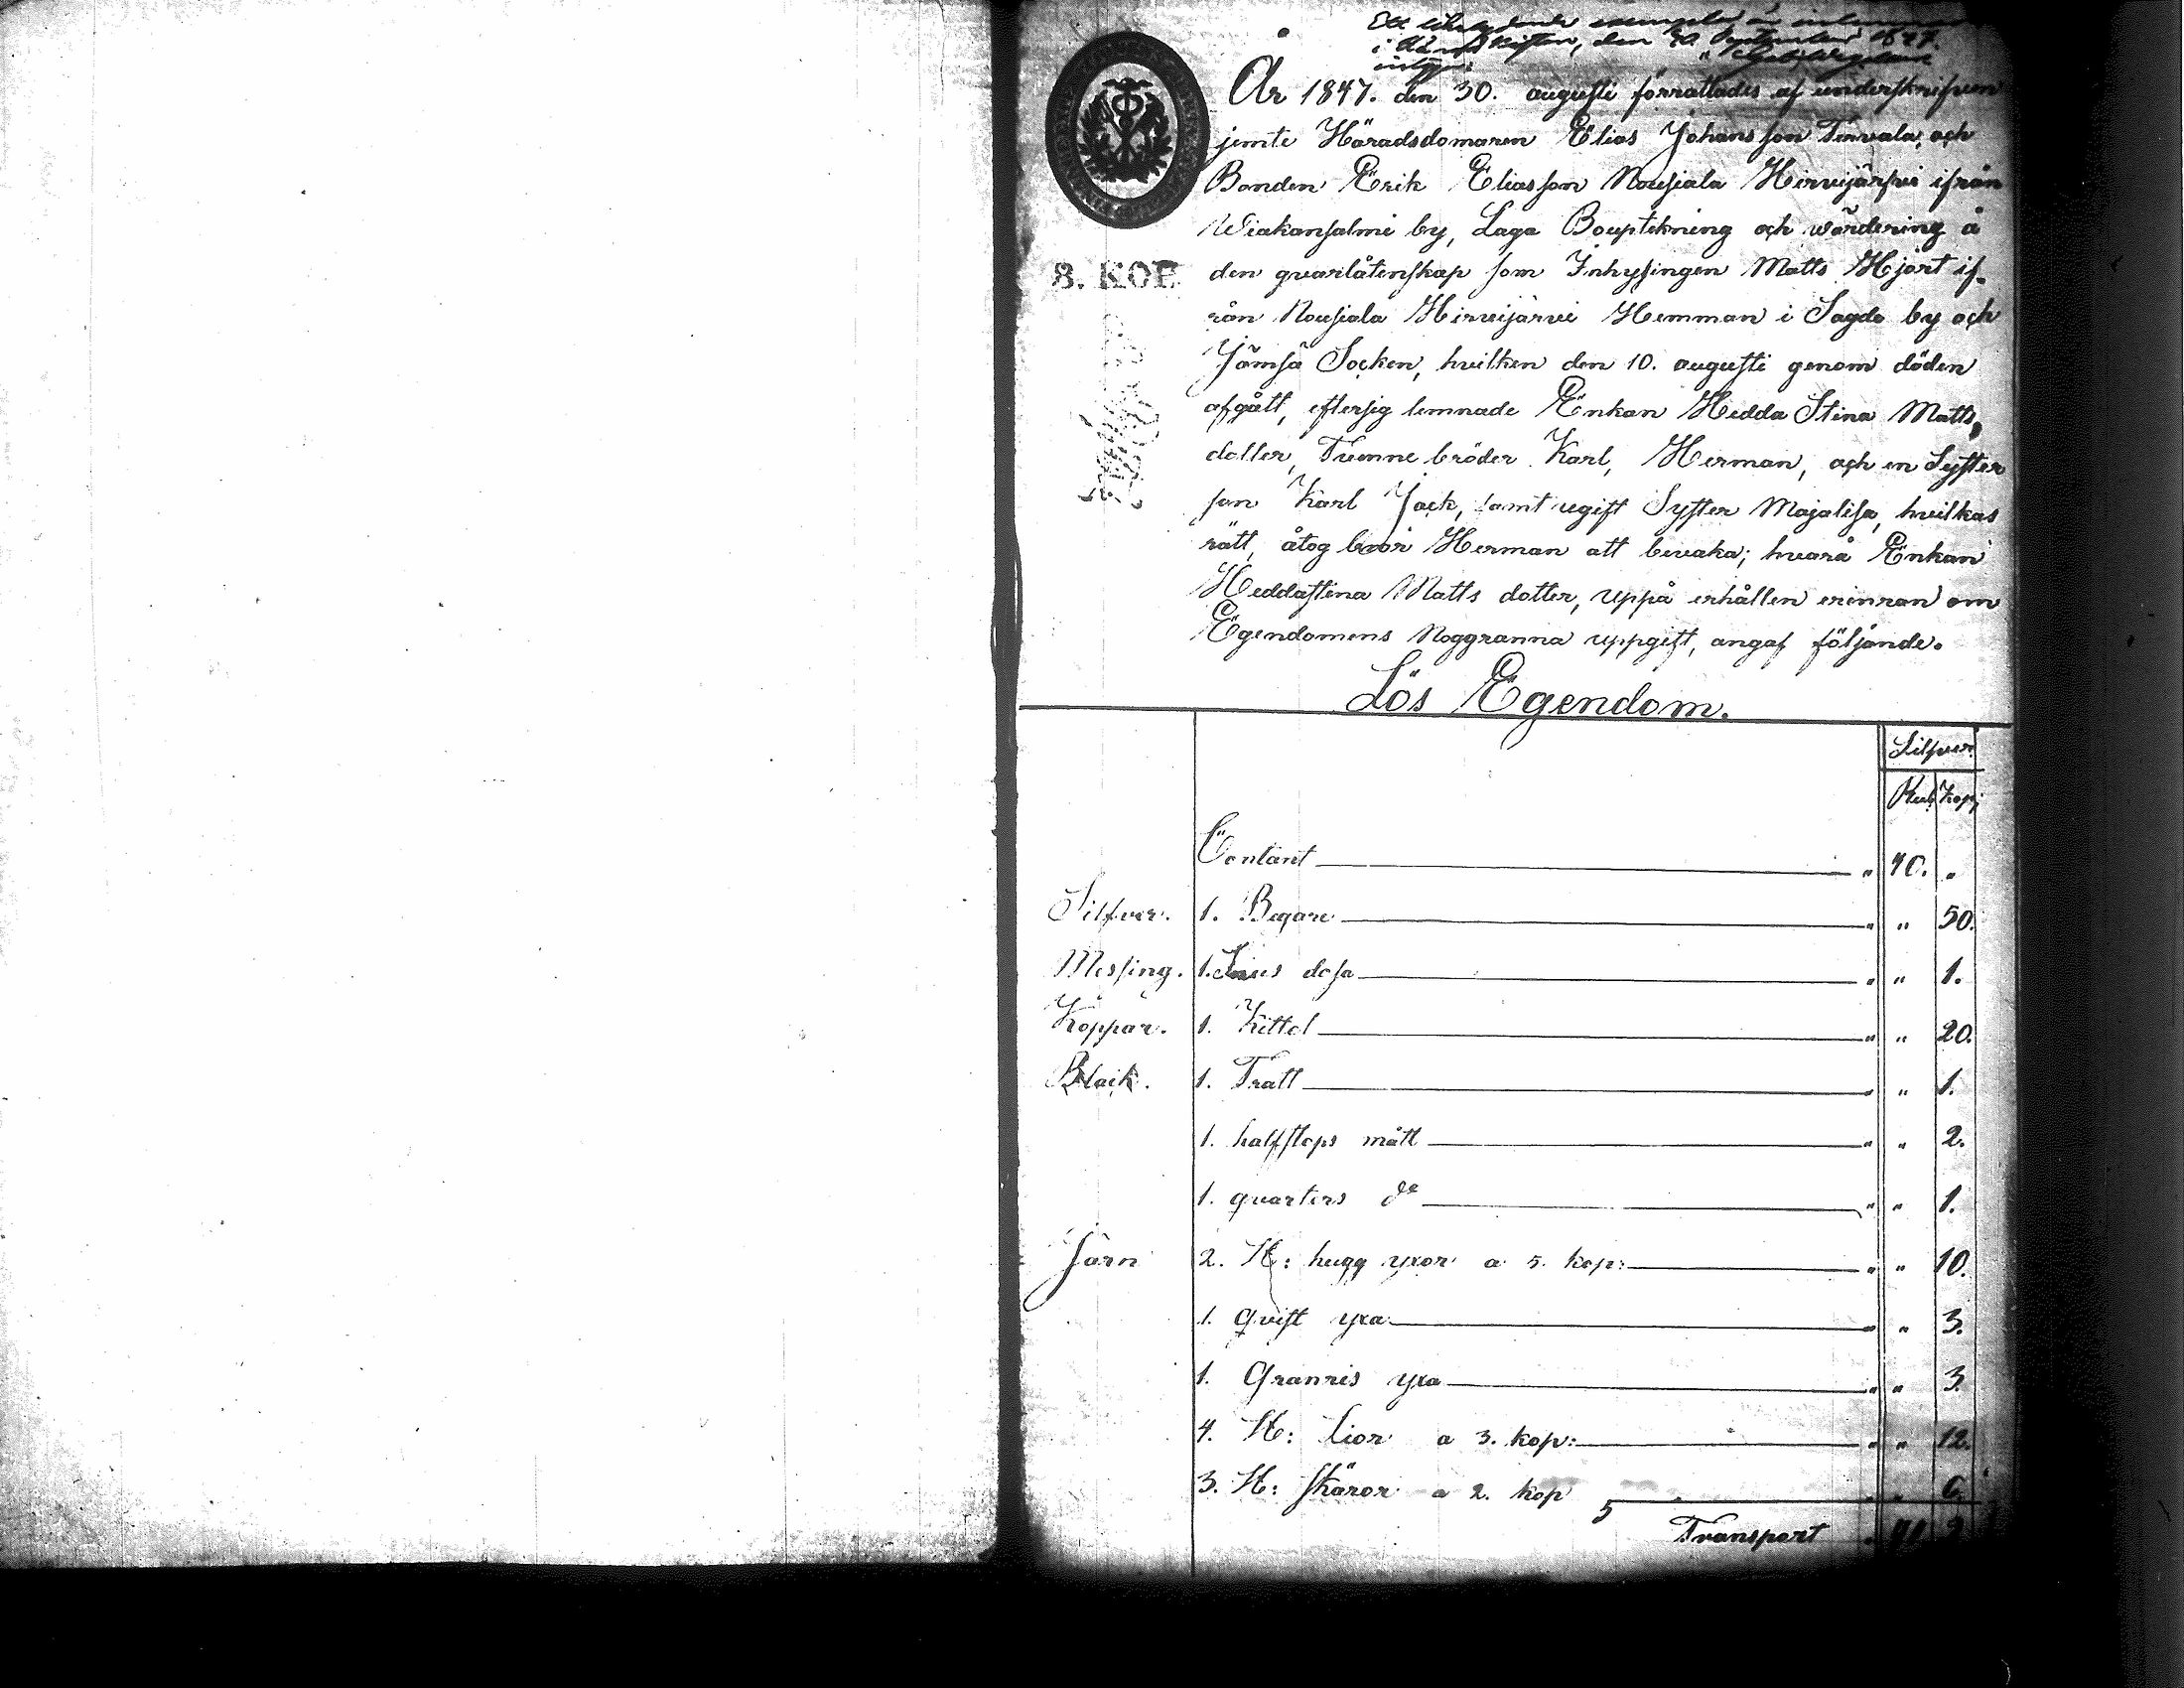 Ett exemplar är
i den 30 September 1847.
intygar
År 1847. den 30. augusti förrättades af underskrifven
jemte Häradsdomaren Elias Johansson Tervala, och
Bonden Erik Eliasson Nousiala Hirvijärfvi ifrån
Wiakansalmi by, Laga Bouptekning och wärdering å
8. KOP. den qvarlåtenskap som Inhysingen Matts Hjort if-
rån Nousiala Hirvijärvi Hemman i Sagdo by och
Jämsä Socken, hvilken den 10. augusti genom döden
afgått, eftersig lemnade Enkan Hedda Stina Matts,
dotter, Tvenne bröder Karl, Herman, och en Syster
son Karl Jack, samt ugift Syster Majalisa, hvilkas
rätt, åtog bror Herman att bevaka; hvarå Enkan
Heddastina Matts dotter, uppå erhållen erinran om
Egendomens Noggranna uppgift, angaf följande.
Lös Egendom.
Silfver
Rub. Kop.
Contant " 40. "
Silfver. 1. Bägare " " 50.
Messing. 1. Snus dosa " " 1.
Koppar. 1. Kittel " " 20.
Bläck. 1. Tratt " " 1.
1. halfstops mått " " 2.
1. quarters do " " 1.
Järn 2. St: hugg yxor a 5. kop: " " 10.
1. qvist yxa " " 3.
1. Granris yxa " " 3.
4. St: Lior a 3. kop: " " 12.
3. St: Skäror a 2. kop " " 6.
Transport "